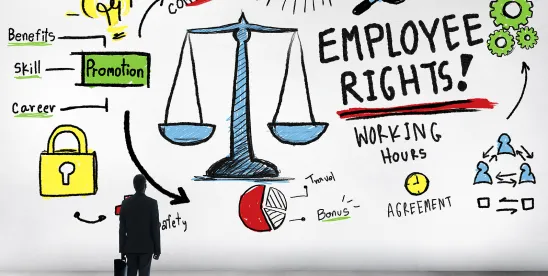 Benefits
Skill
Promotion
Career
EMPLOYEE
RIGHTS!
WORKING
HOURS
AGREEMENT
Travel
Bonus